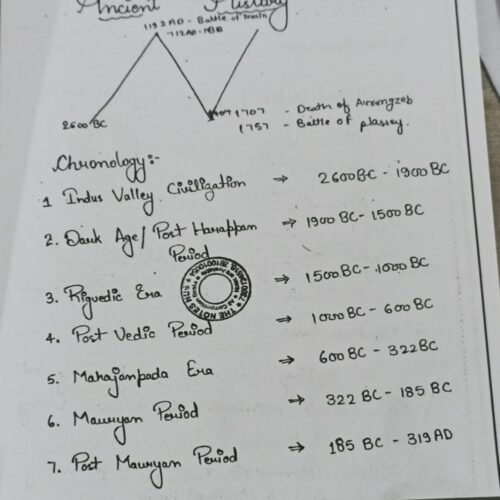 Ancient History
1192 AD - Battle of
712 AD -
2600 BC
1707 - Death of Aurangzeb
1757 - Battle of plassey.
Chronology:-
1 Indus Valley Civilization ⇒ 2600 BC - 1900 BC
2. Dark Age/Post Harappan Period ⇒ 1900 BC - 1500 BC
3. Rigvedic Era ⇒ 1500 BC - 1000 BC
4. Post Vedic Period ⇒ 1000 BC - 600 BC
5. Mahajanpada Era ⇒ 600 BC - 322 BC
6. Mauryan Period ⇒ 322 BC - 185 BC
7. Post Mauryan Period ⇒ 185 BC - 319 AD
THE NOTES